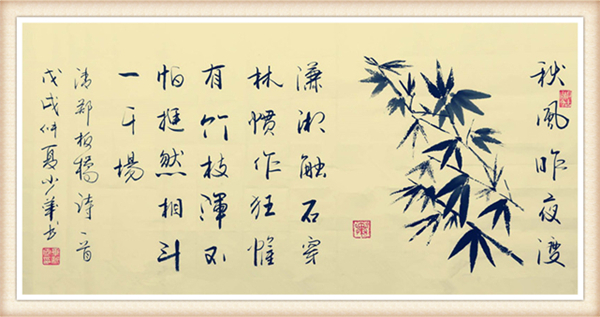 秋風昨夜渡
潇湘触石穿
林惯作狂惟
有竹枝渾不
怕挺然相斗
一千場
清郑板橋诗一首
戊戌仲夏小華书